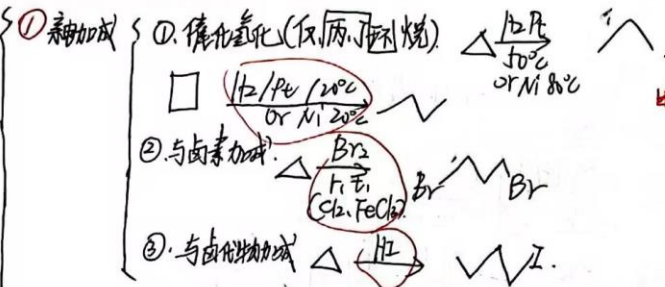 ① 亲电加成 ①. 催化氢化(仅丙、丁环烷). H2 Pt
50℃
or Ni 80℃
H2/Pt 120℃
or Ni 20℃
② 与卤素加成. Br2
r.t. Br Br
(Cl2、FeCl3).
③. 与卤化物加成 HI I.